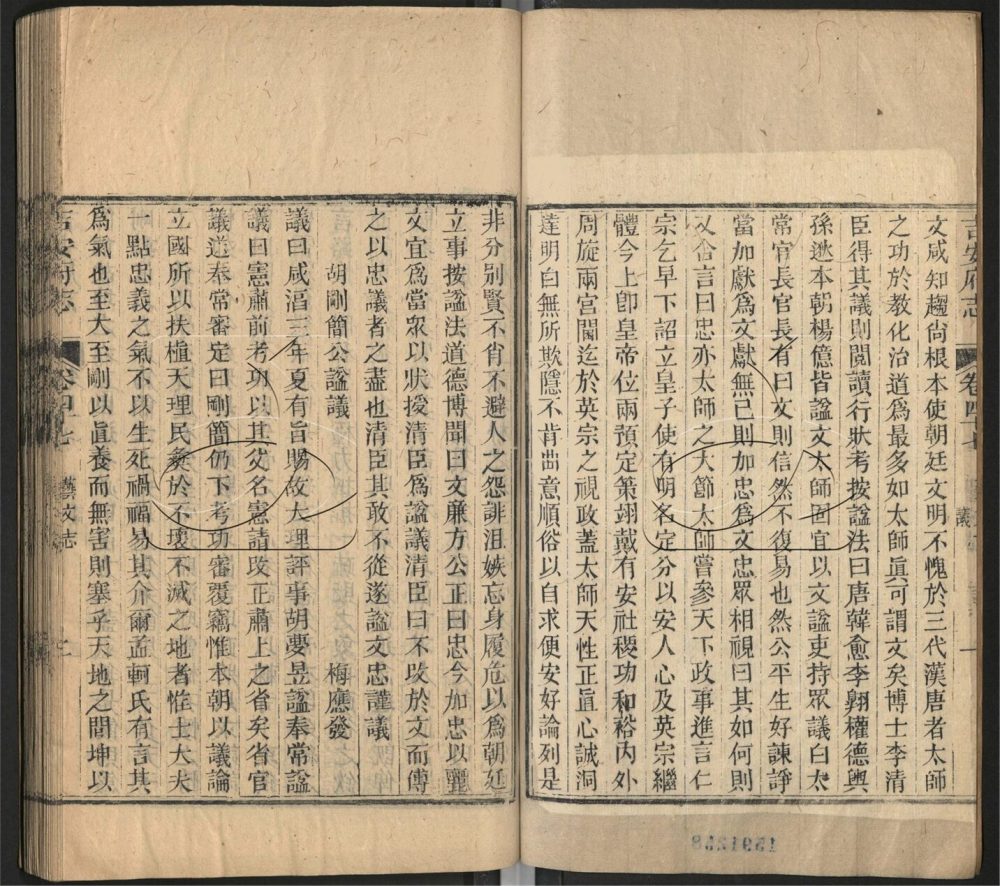 吉安府志 卷四十七 議 一
文咸知趨尚根本使朝廷文明不愧於三代漢唐者太師
之功於教化治道爲最多如太師眞可謂文矣博士李清
臣得其議則閱讀行狀考按諡法曰唐韓愈李翺權德輿
孫逖本朝楊億皆諡文太師固宜以文諡吏持眾議白太
常官長官長有曰文則信然不復易也然公平生好諫諍
當加獻爲文獻無已則加忠爲文忠眾相視曰其如何則
又合言曰忠亦太師之大節太師嘗參天下政事進言仁
宗乞早下詔立皇子使有明名定分以安人心及英宗繼
體今上卽皇帝位兩預定策翊戴有安社稷功和裕內外
周旋兩宮閒迄於英宗之視政蓋太師天性正直心誠洞
達明白無所欺隱不肯曲意順俗以自求便安好論列是
非分別賢不肖不避人之怨誹沮嫉忘身履危以爲朝廷
立事按諡法道德博聞曰文廉方公正曰忠今加忠以麗
文宜爲當眾以狀授清臣爲諡議清臣曰不改於文而傅
之以忠議者之盡也清臣其敢不從遂諡文忠謹議
胡剛簡公諡議 梅應發
議曰咸淳三年夏有旨賜故大理評事胡夢昱諡奉常諡
議曰憲肅前考功以其父名憲請改正肅上之省矣省官
議送奉常審定曰剛簡仍下考功審覆竊惟本朝以議論
立國所以扶植天理民彝於不壞不滅之地者惟士大夫
一點忠義之氣不以生死禍福易其介爾孟軻氏有言其
爲氣也至大至剛以眞養而無害則塞乎天地之間坤以
吉安府志 卷四十七 藝文志
1591258